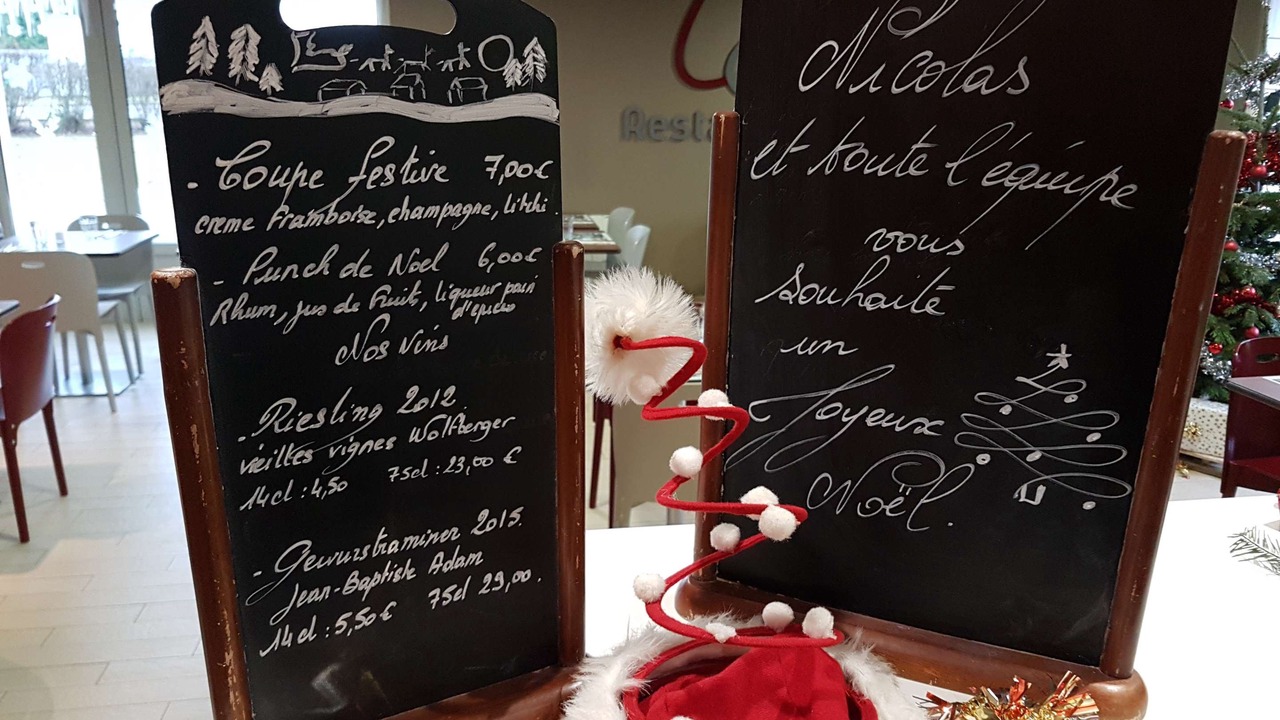 - Coupe festive 7,00€
creme framboise, champagne, litchi
- Punch de Noel 6,00€
Rhum, jus de fruit, liqueur pain
d'epices
Nos vins
- Riesling 2012.
vieilles vignes Wolfberger
14cl : 4,50 75cl : 23,00 €
- Gewurstraminer 2015.
Jean-Baptiste Adam
14cl : 5,50€ 75cl 29,00.
Resta
Nicolas
et toute l'équipe
vous
souhaite
un
Joyeux
Noël.